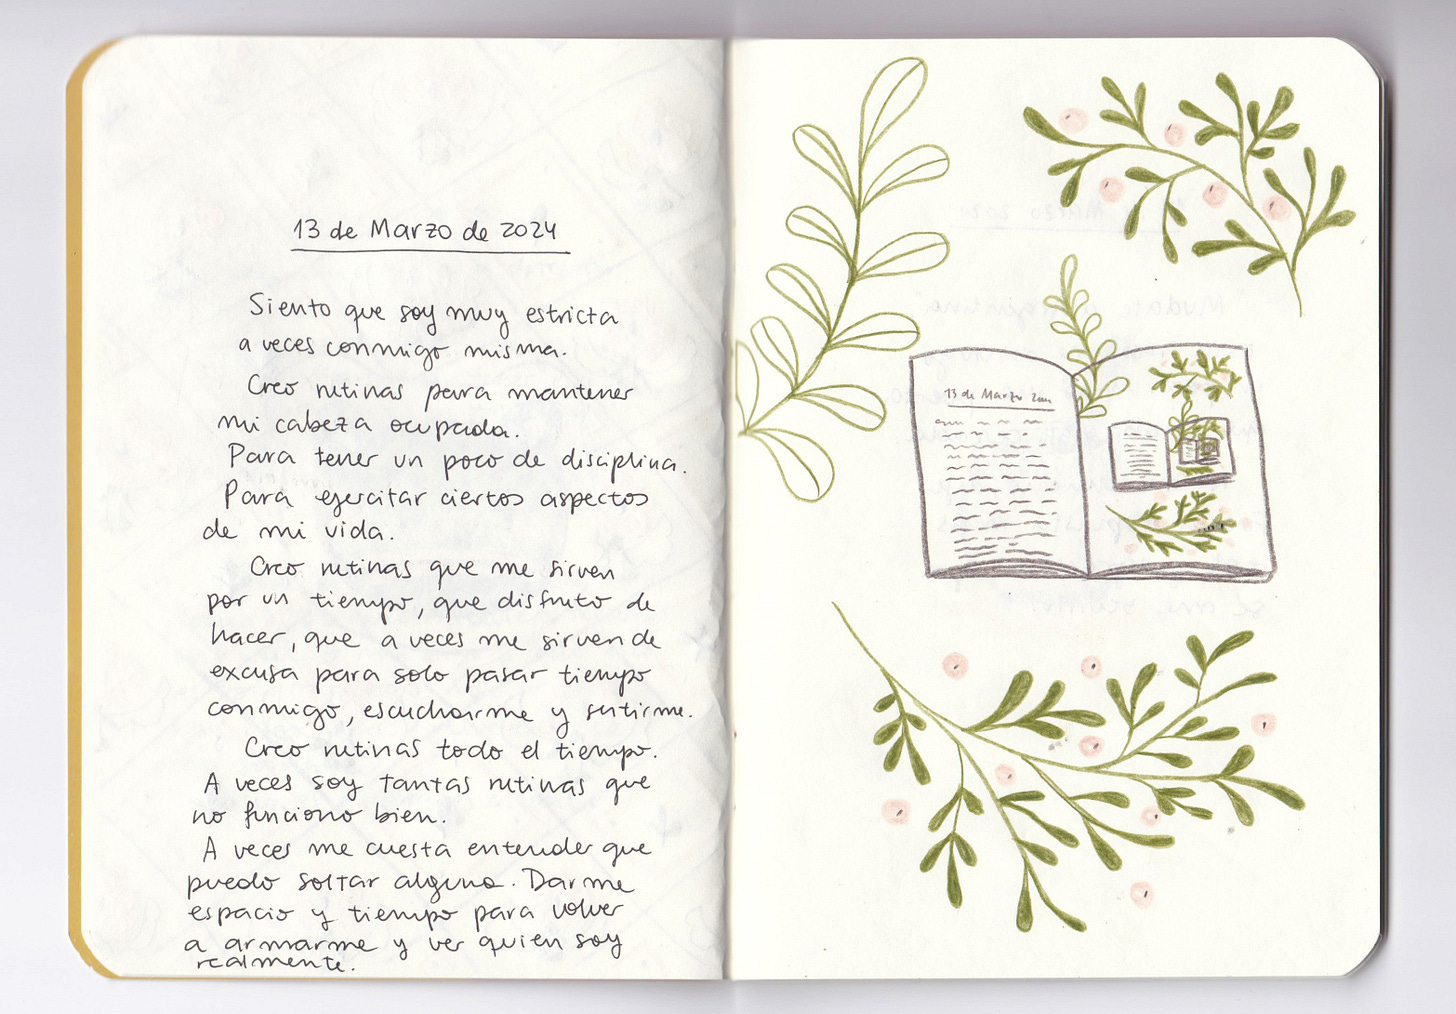 13 de Marzo de 2024
Siento que soy muy estricta
a veces conmigo misma.
Creo rutinas para mantener
mi cabeza ocupada.
Para tener un poco de disciplina.
Para ejercitar ciertos aspectos
de mi vida.
Creo rutinas que me sirven
por un tiempo, que disfruto de
hacer, que a veces me sirven de
excusa para solo pasar tiempo
conmigo, escucharme y sentirme.
Creo rutinas todo el tiempo.
A veces soy tantas rutinas que
no funciono bien.
A veces me cuesta entender que
puedo soltar alguna. Darme
espacio y tiempo para volver
a armarme y ver quien soy
realmente.
13 de Marzo